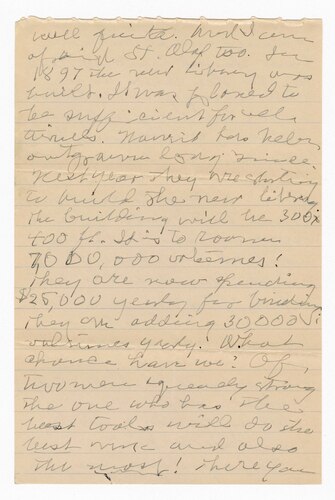 well quite. And I am
of St. Olaf too. In
1897 the new library was
built. It was planned to
be sufficient for all
times. Now it has been
outgrown long since.
Next year they are starting
to build the new library
the building will be 300 x
400 ft. It is to room
7,000,000 volumes!
They are now spending
$25,000 yearly for binding
They are adding 30,000
volumes yearly! What
chance have we? Of
two men equally strong
the one who has the
best tools will do the
best work and also
the most! There you